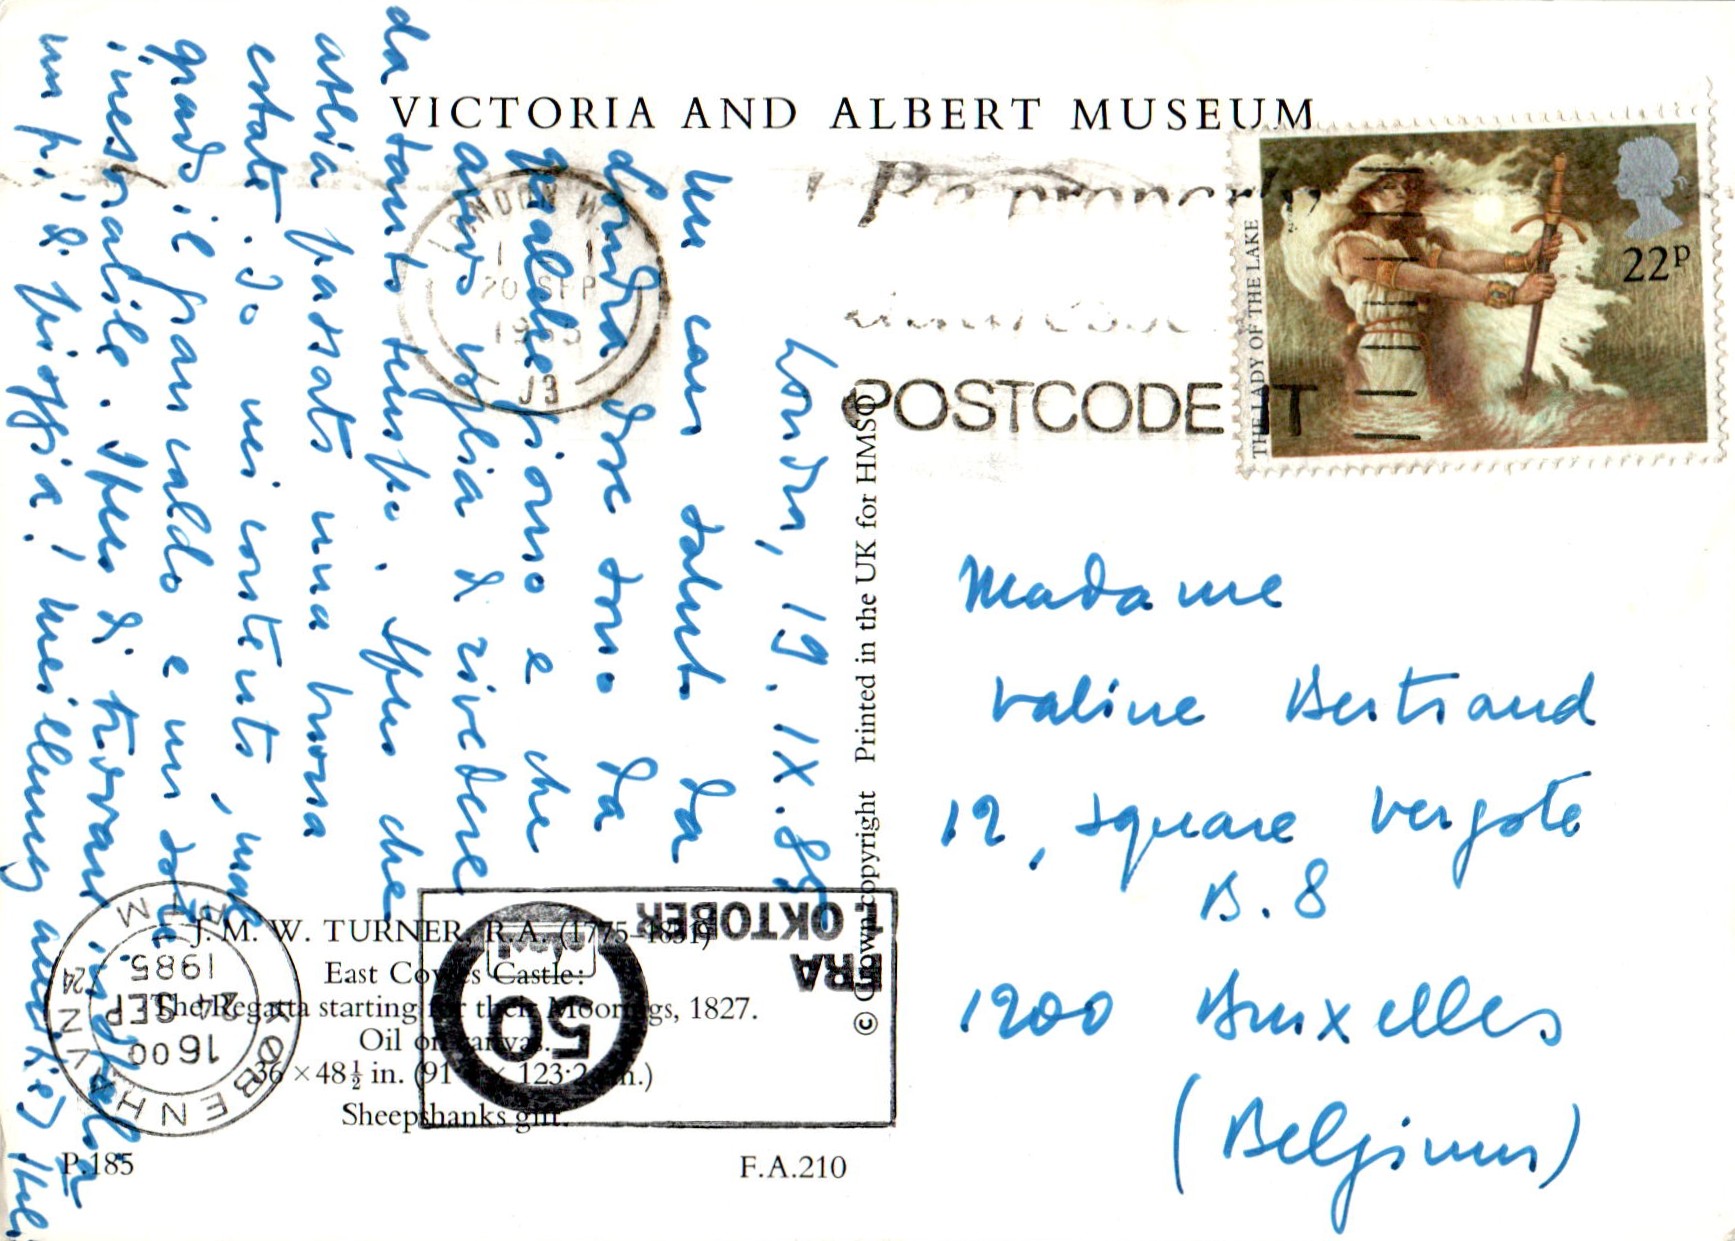 VICTORIA AND ALBERT MUSEUM
Londra, 19.IX.85
Un caro saluto da
Londra dove sono da
qualche giorno e che
avevo voglia di rivedere
da tanto tempo. Spero che
abbia passato una buona
estate. Io mi contento, male
grado il gran caldo e un sole
inesorabile. Spero di trovare in
un po' di pioggia!
LONDON W.1
20 SEP
1985
J3
POSTCODE IT
THE LADY OF THE LAKE
22P
© Crown copyright Printed in the UK for HMSO
Madame
Valine Bertrand
12, square Vergote
B.8
1200 Bruxelles
(Belgium)
J. M. W. TURNER, R.A. (1775–1851)
East Cowes Castle:
The Regatta starting for their Moorings, 1827.
Oil on canvas.
36 × 48½ in. (91 × 123·2 cm.)
Sheepshanks gift.
P.185
F.A.210
KØBENHAVN
24 SEP
1985
1600
50
FRA
1. OKTOBER